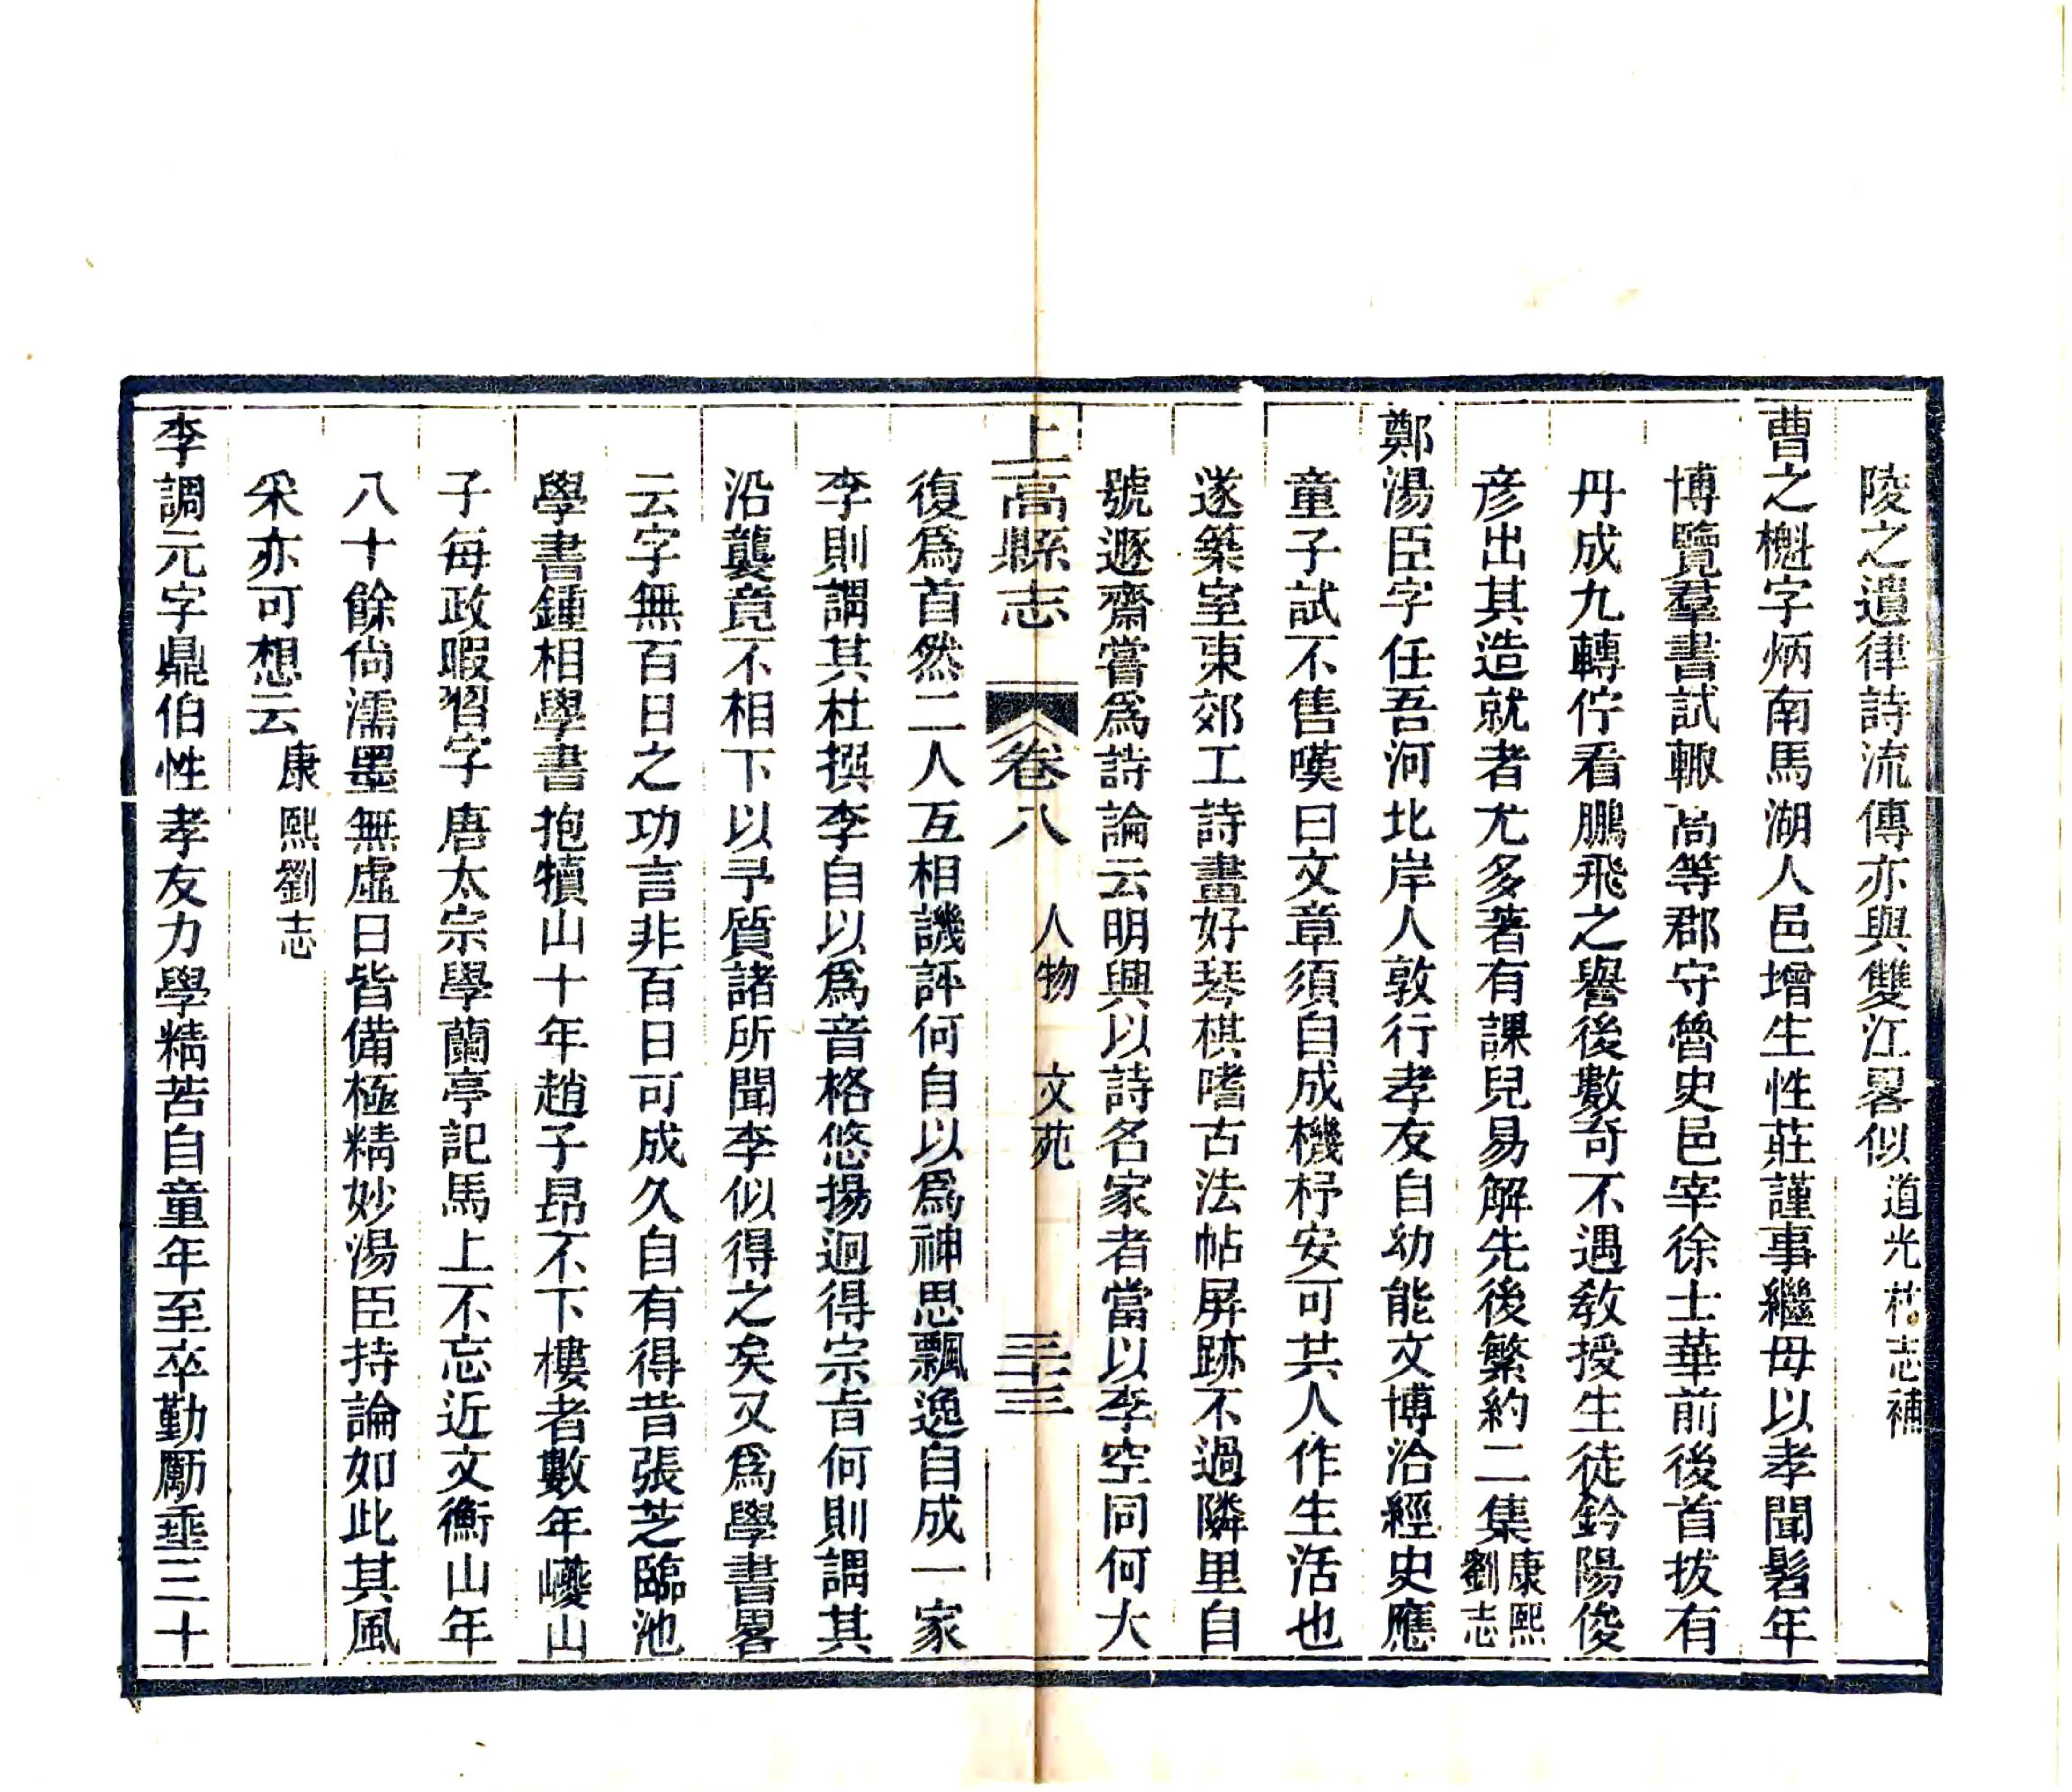 陵之遺律詩流傳亦與雙江畧似道光林志補
曹之櫆字炳南馬湖人邑增生性莊謹事繼母以孝聞髫年
博覽羣書試輒高等郡守魯史邑宰徐士華前後首拔有
丹成九轉佇看鵬飛之譽後數奇不遇敎授生徒鈐陽俊
彦出其造就者尤多著有課兒易解先後繁約二集康熙劉志
鄭湯臣字任吾河北岸人敦行孝友自幼能文博洽經史應
童子試不售嘆曰文章須自成機杼安可共人作生活也
遂築室東郊工詩畫好琴棋嗜古法帖屏跡不過隣里自
號遯齋嘗爲詩論云明興以詩名家者當以李空同何大
上高縣志 卷八 人物 文苑 三十三
復爲首然二人互相譏評何自以爲神思飄逸自成一家
李則謂其杜撰李自以爲音格悠揚迥得宗旨何則謂其
沿襲竟不相下以予質諸所聞李似得之矣又爲學書畧
云字無百日之功言非百日可成久自有得昔張芝臨池
學書鍾相學書抱犢山十年趙子昂不下樓者數年巙山
子每政暇習字唐太宗學蘭亭記馬上不忘近文衡山年
八十餘尙濡墨無虛日皆備極精妙湯臣持論如此其風
采亦可想云康熙劉志
李調元字鼎伯性孝友力學精苦自童年至卒勤勵垂三十